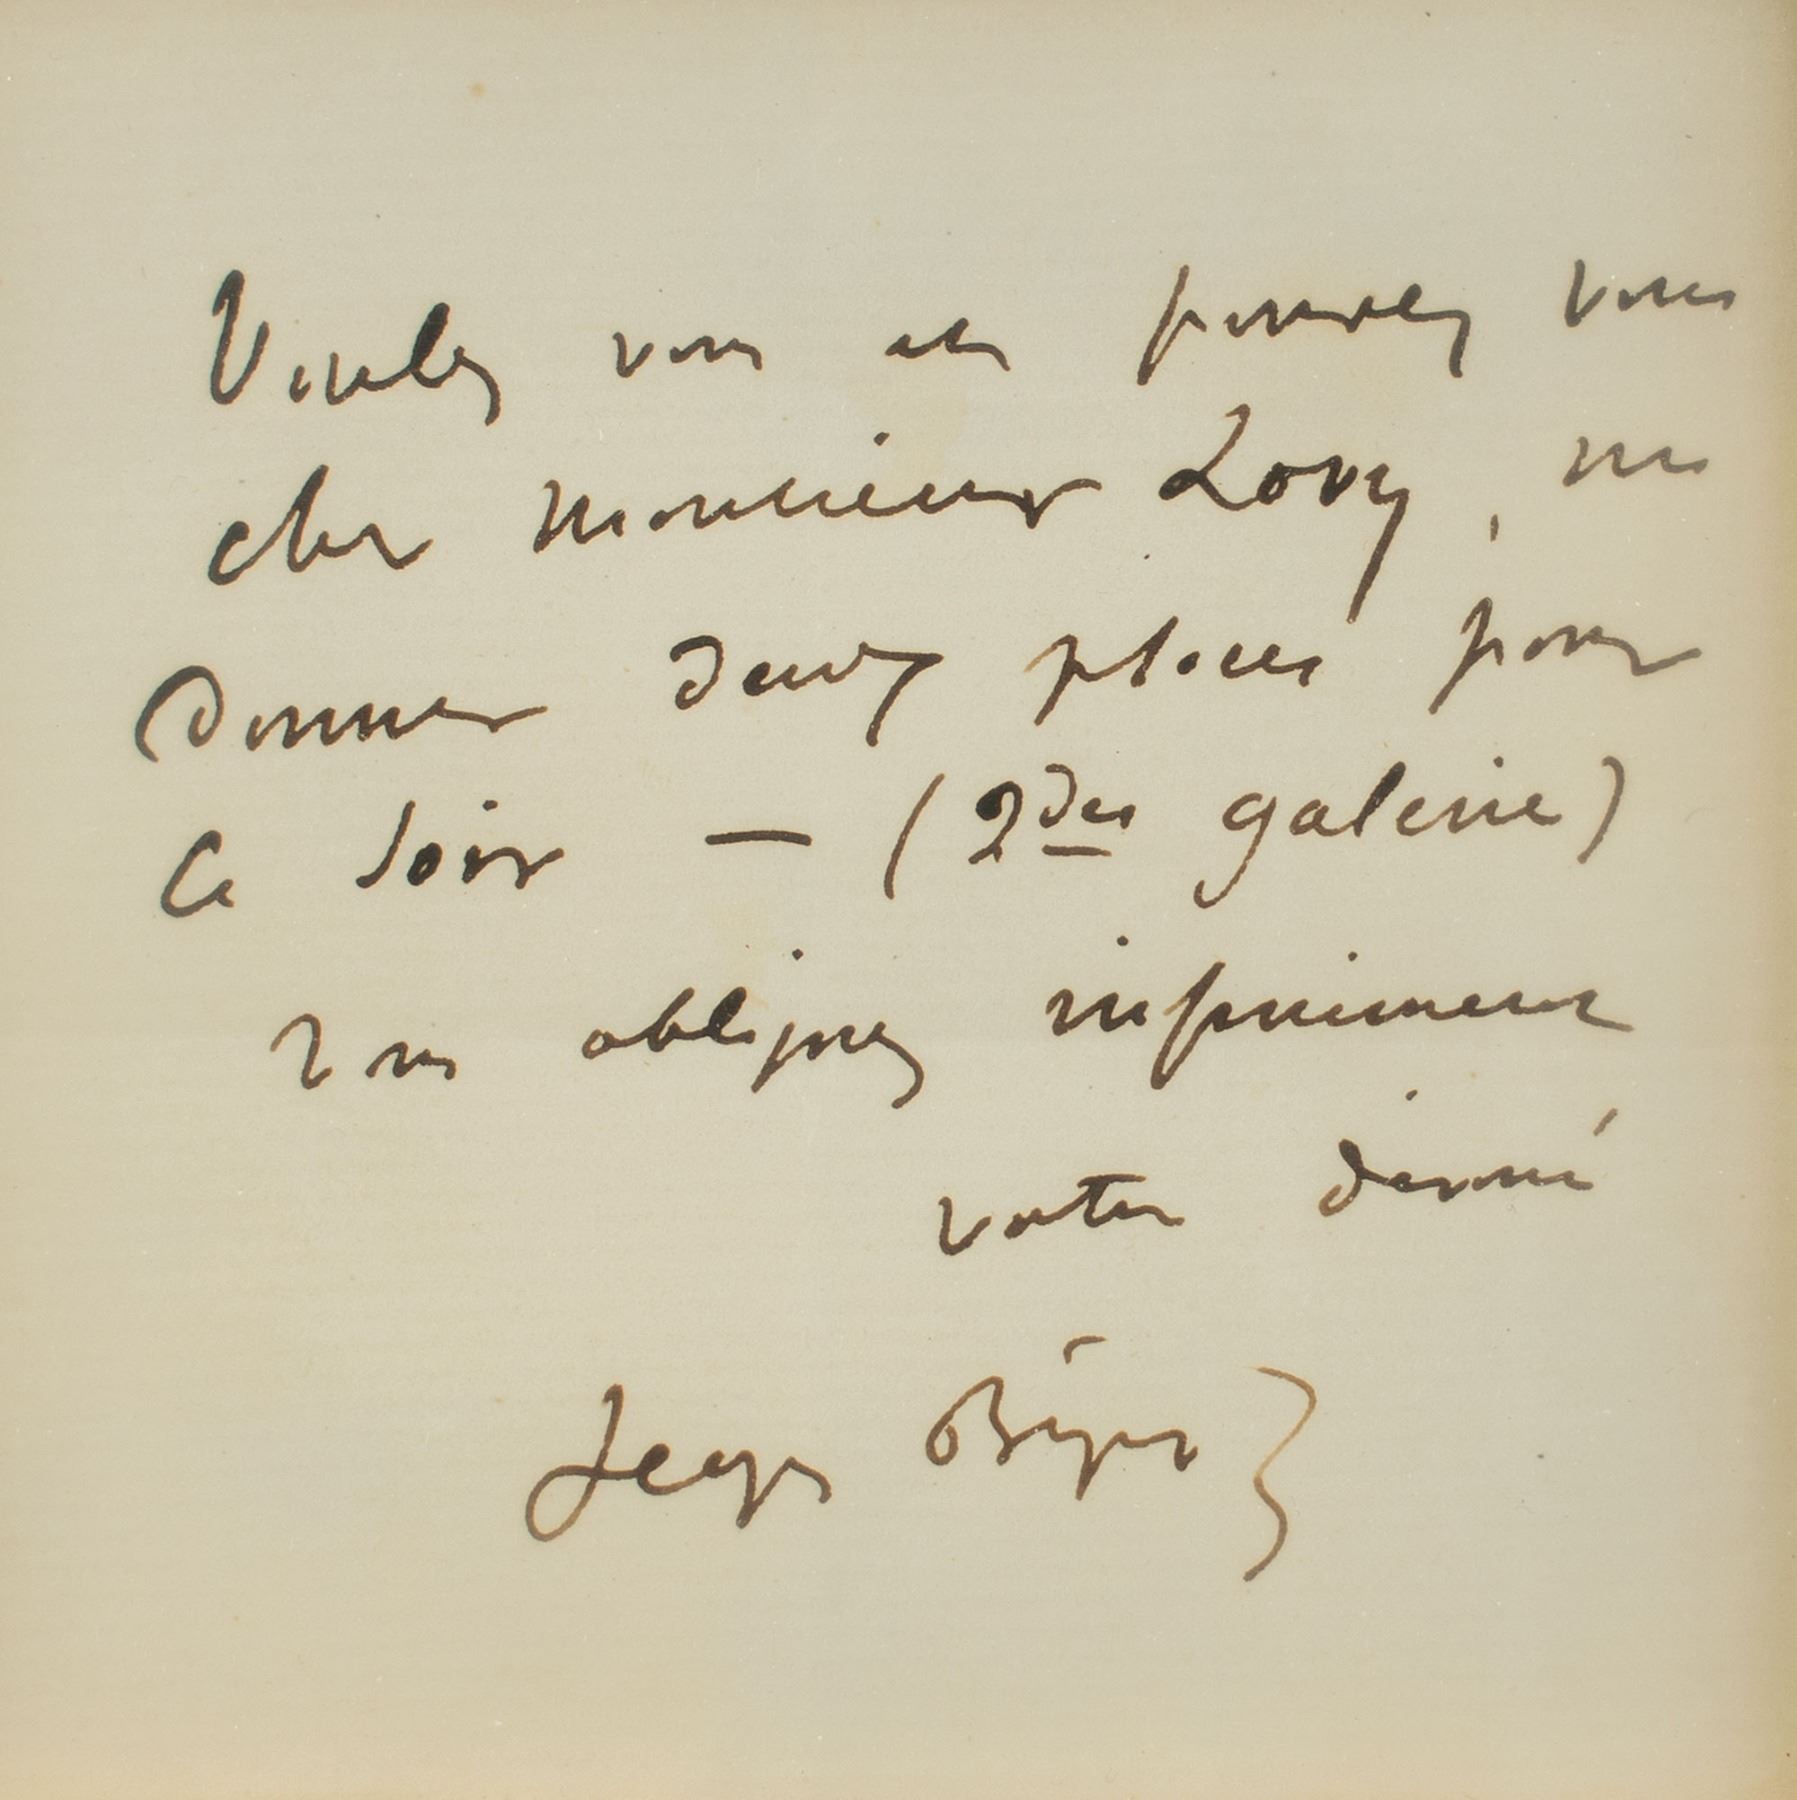 Voulez vous et pouvez vous
cher monsieur Lovy, me
donner deux places pour
ce soir — (2des galerie)
vous obligerez infiniment
votre dévoué
Georges Bizet